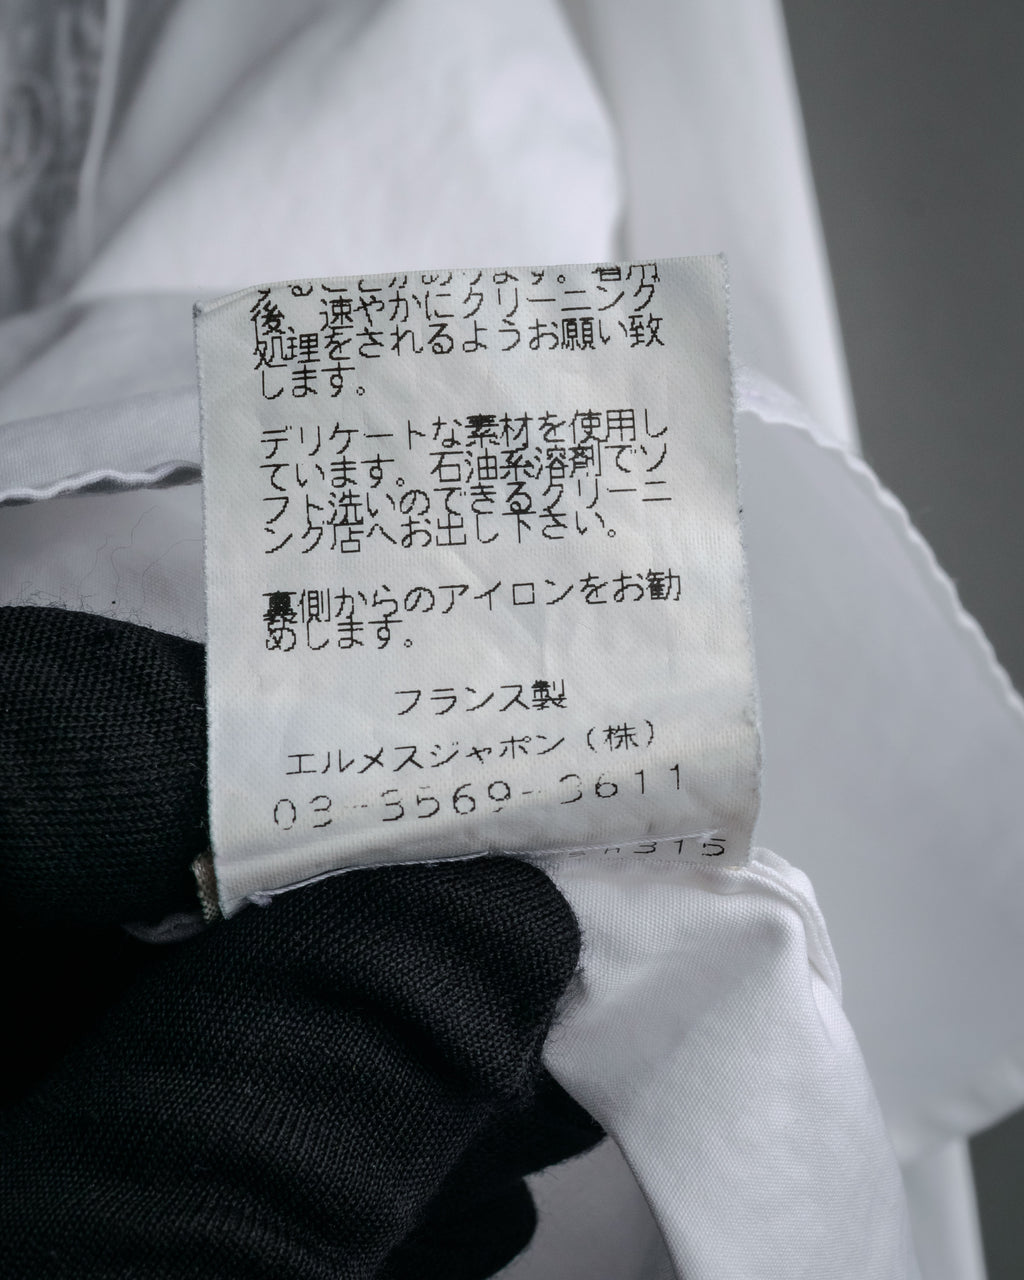 ることがあります。着用
後、速やかにクリーニング
処理をされるようお願い致
します。
デリケートな素材を使用し
ています。石油系溶剤でソ
フト洗いのできるクリーニ
ング店へお出し下さい。
裏側からのアイロンをお勧
めします。
フランス製
エルメスジャポン(株)
03-3569-3611